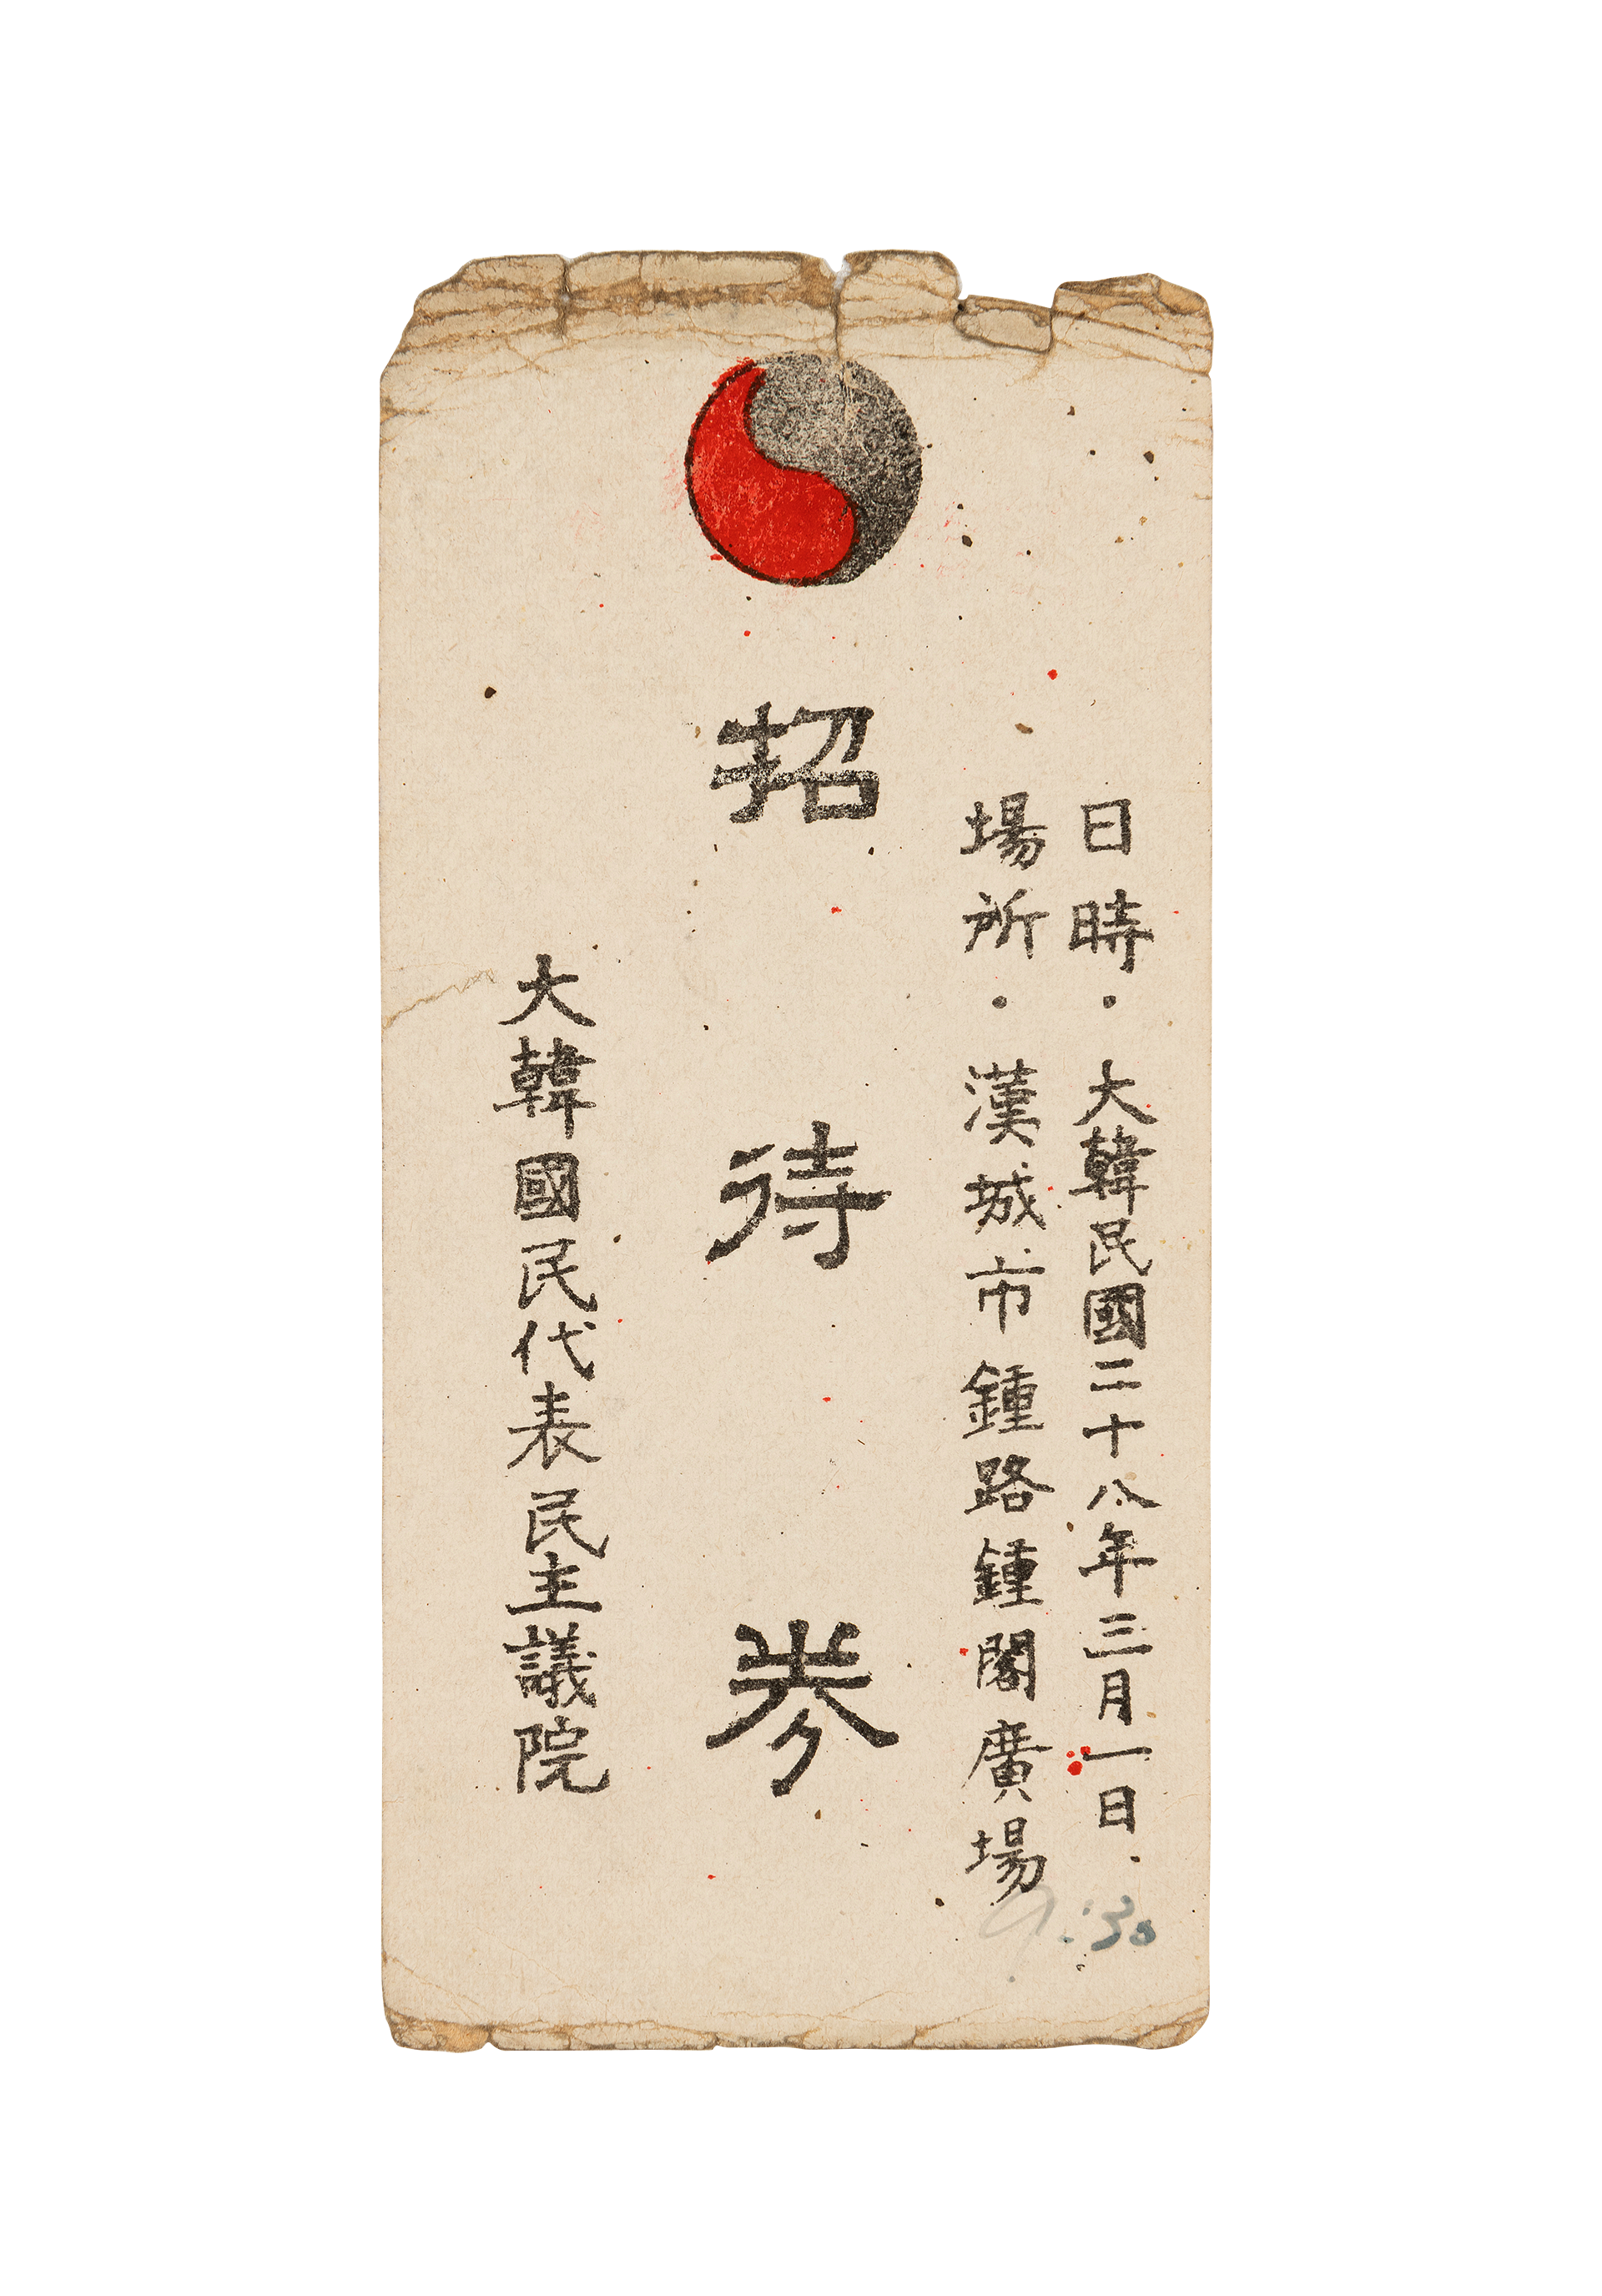 日時・大韓民國二十八年三月一日.
場所・漢城市鍾路鍾閣廣場
9:30
招待券
大韓國民代表民主議院